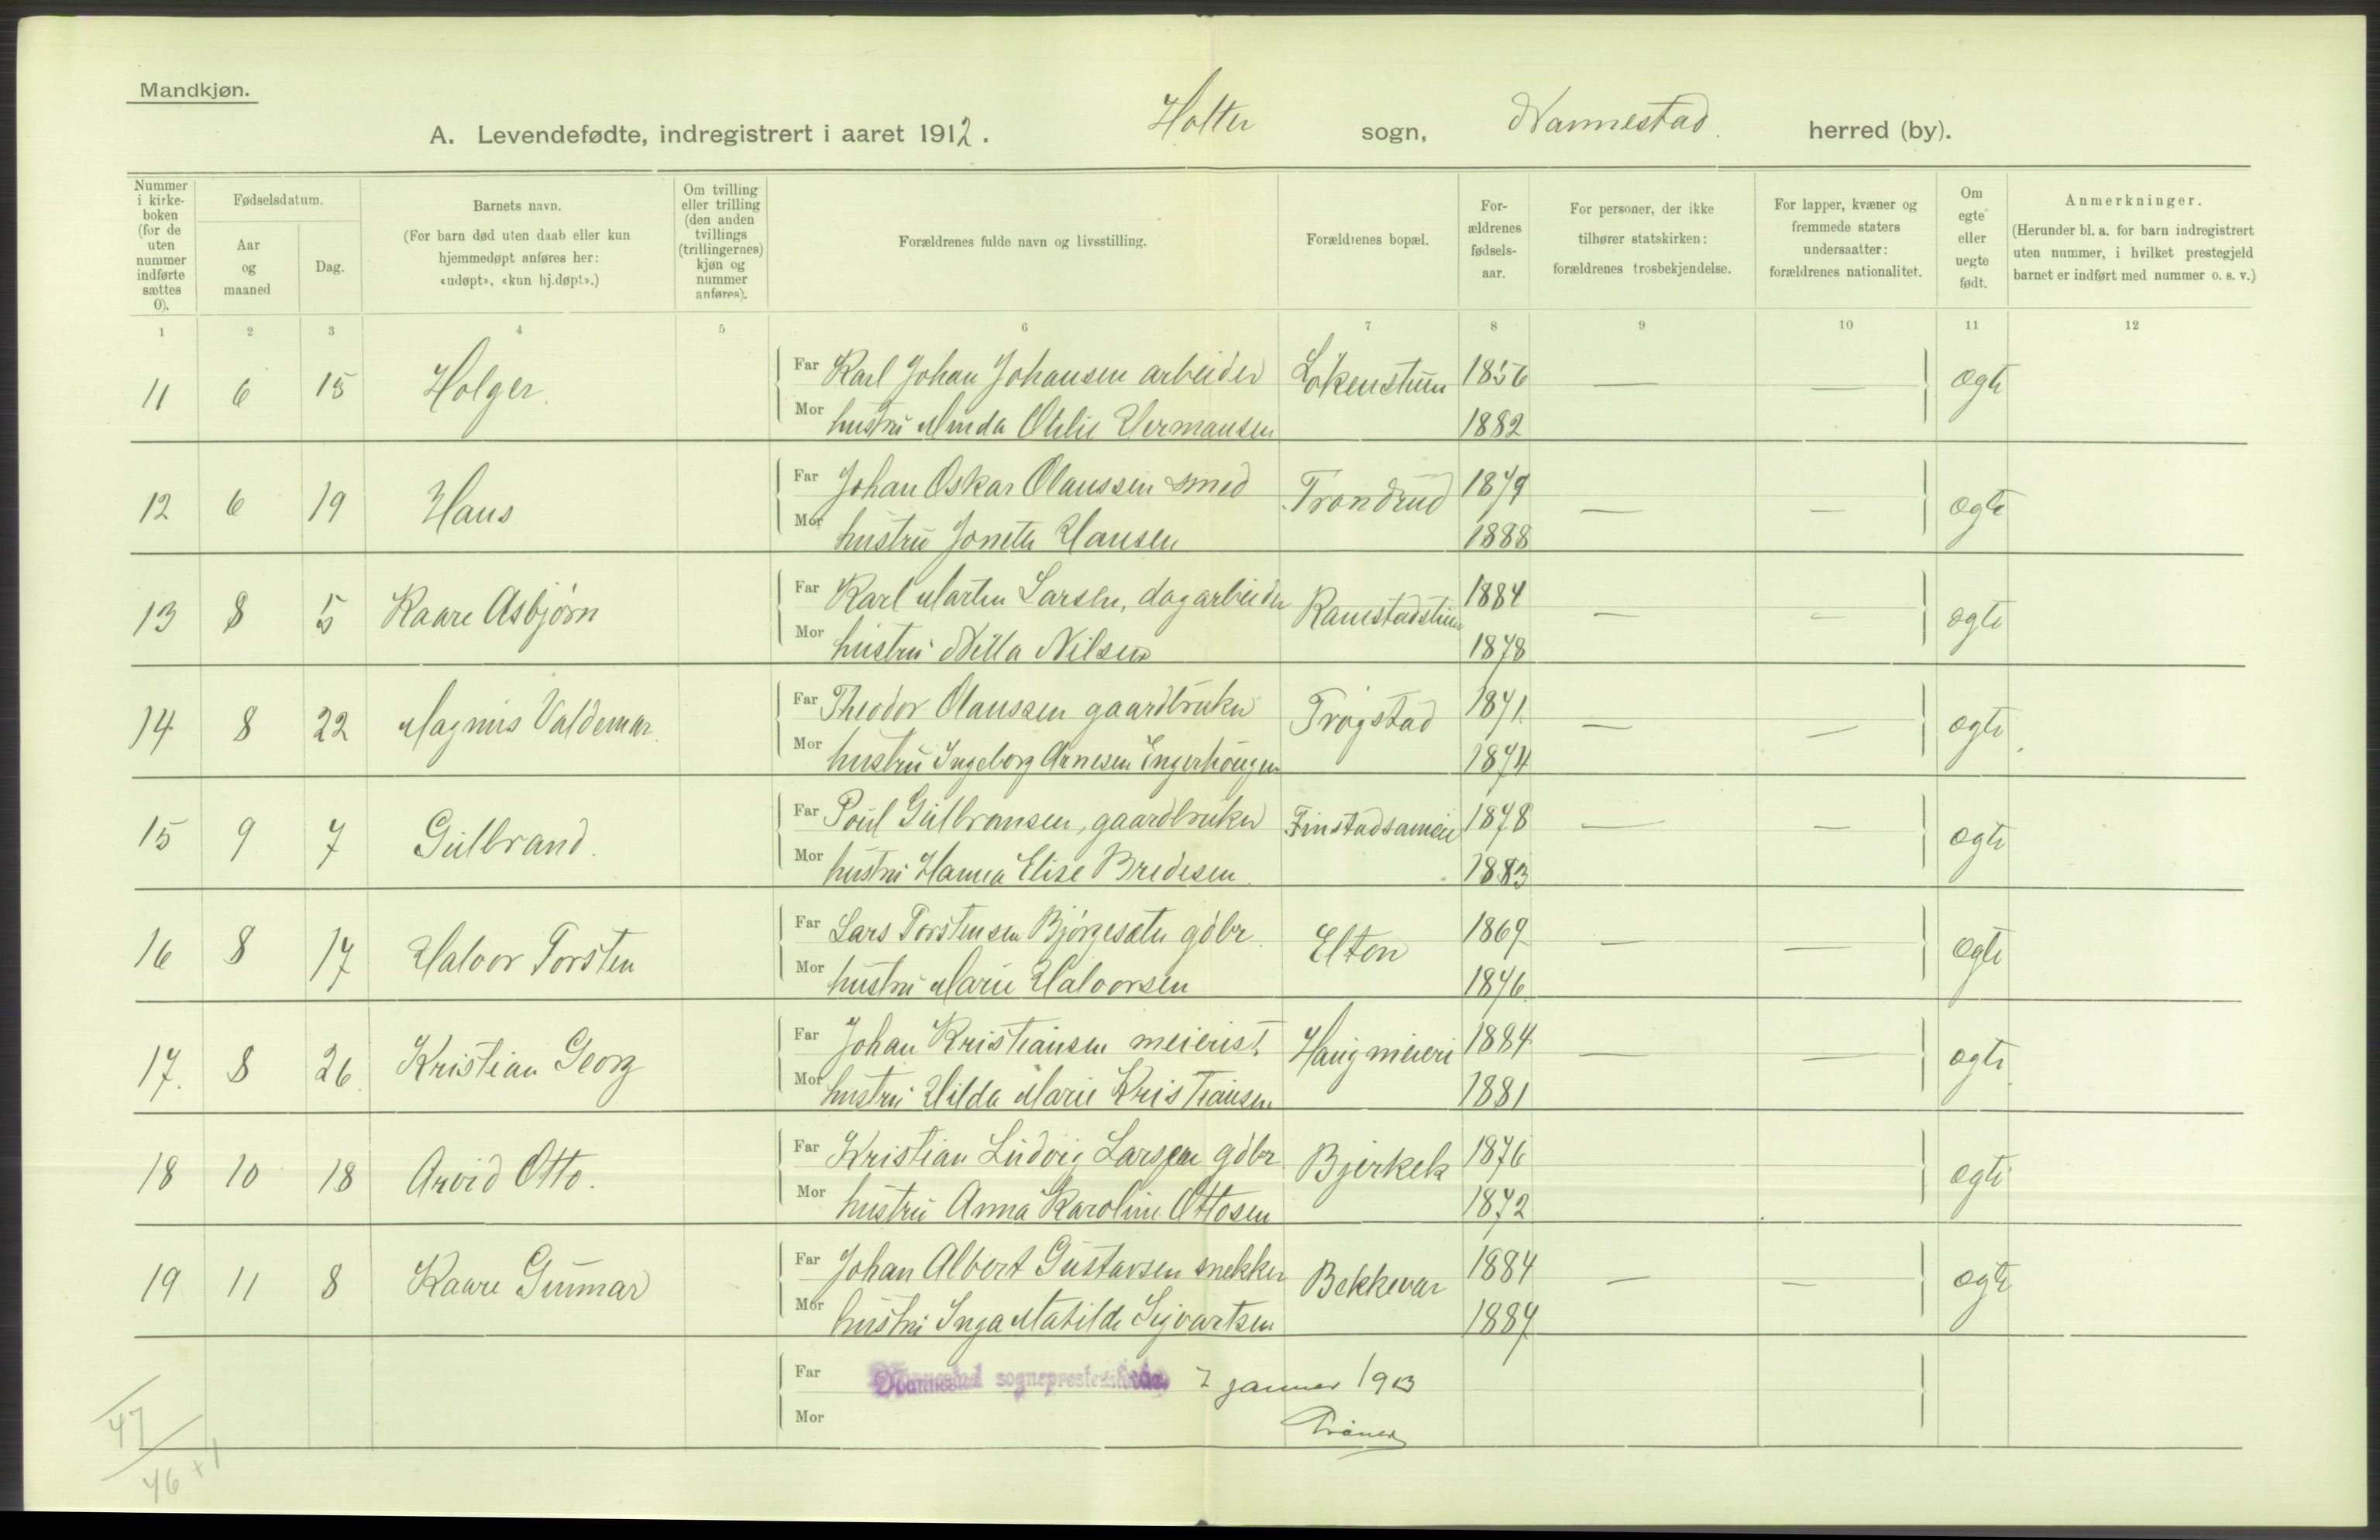 Mandkjøn.
A. Levendefødte, indregistrert i aaret 1912. Holter sogn, Nannestad. herred (by).
Nummer i kirke-boken (for de uten nummer indførte sættes 0).
Fødselsdatum.
Aar og maaned
Dag.
Barnets navn.
(For barn død uten daab eller kun hjemmedøpt anføres her: «udøpt», «kun hj.døpt».)
Om tvilling eller trilling (den anden tvillings (trillingernes) kjøn og nummer anføres).
Forældrenes fulde navn og livsstilling.
Forældrenes bopæl.
For-ældrenes fødsels-aar.
For personer, der ikke tilhører statskirken: forældrenes trosbekjendelse.
For lapper, kvæner og fremmede staters undersaatter: forældrenes nationalitet.
Om egte eller uegte født.
Anmerkninger.
(Herunder bl. a. for barn indregistrert uten nummer, i hvilket prestegjeld barnet er indført med nummer o. s. v.)
1 2 3 4 5 6 7 8 9 10 11 12
11 6 15 Holger. Far Karl Johan Johansen arbeider Løkenstuen 1856 — — ægte
Mor hustru Minda Otilie Hermansen 1882
12 6 19 Hans Far Johan Oskar Olaussen smed Trondrud 1879 — — ægte
Mor hustru Jonette Hansen 1888
13 8 5 Kaare Asbjørn Far Karl Martin Larsen, dagarbeider Ramstadstuen 1884 — — ægte
Mor hustru Nilla Nilsen 1878
14 8 22 Magnus Valdemar. Far Theodor Olaussen gaardbruker Trøgstad 1871 — — ægte
Mor hustru Ingeborg Arnesen Engerhougen 1874
15 9 7 Gulbrand. Far Poul Gulbransen, gaardbruker Finstadsameie 1878 — — ægte
Mor hustru Hanna Elise Bredesen. 1883
16 8 17 Halvor Torsten Far Lars Torstensen Bjørgesæter gdbr. Elton 1869 — — ægte
Mor hustru Marie Halvorsen 1876
17. 8 26 Kristian Georg Far Johan Kristiansen meierist. Haug meieri 1884 — — ægte
Mor hustru Hilda Marie Kristiansen 1881
18 10 18 Arvid Otto. Far Kristian Ludvig Larsen gdbr. Bjerkek 1876 ægte
Mor hustru Anna Karoline Ottosen 1872
19 11 8 Kaare Gunnar Far Johan Albert Gustavsen snekker Bekkevar 1884 — — ægte
Mor hustru Inga Matilde Sigvartsen 1887
Far Nannestad sogneprestembede 7 januar 1913
Mor
47
46 + 1